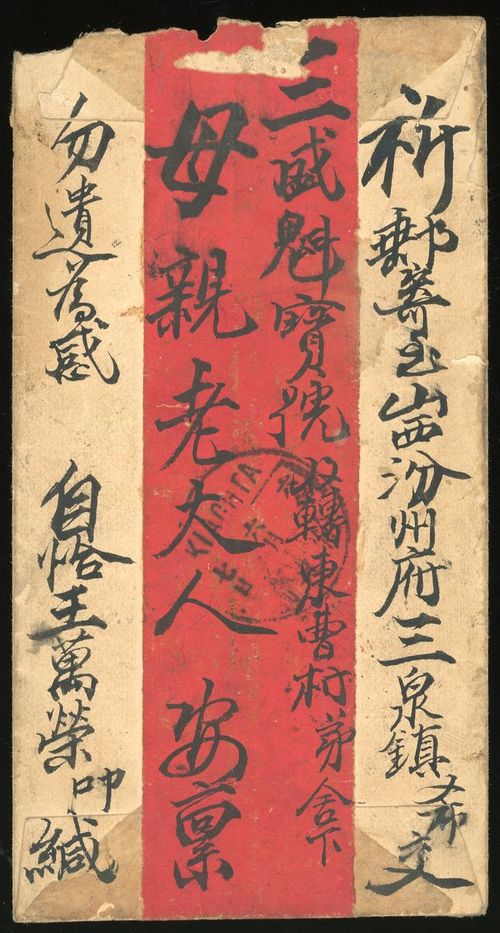 祈郵寄至山西汾州府三泉鎮希交
三盛魁寶號 轉東曹村弟舍下
母親老大人 安禀
勿遺爲感 自恰王萬榮叩緘
KIACHTA